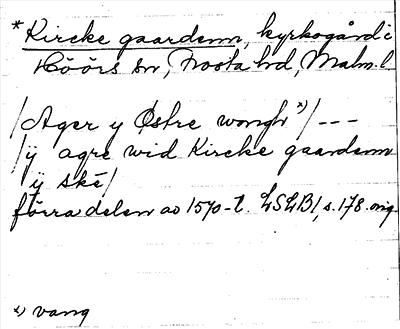 * Kircke gaardenn, kyrkogård i
Höörs sn, Frosta hd, Malm. l
/Ager y Østre wongh x)/ ---
/ÿ agre wid Kircke gaardenn
ÿ ske/
förra delen av 1570-t. LSLB1, s. 178. orig.
x) vang